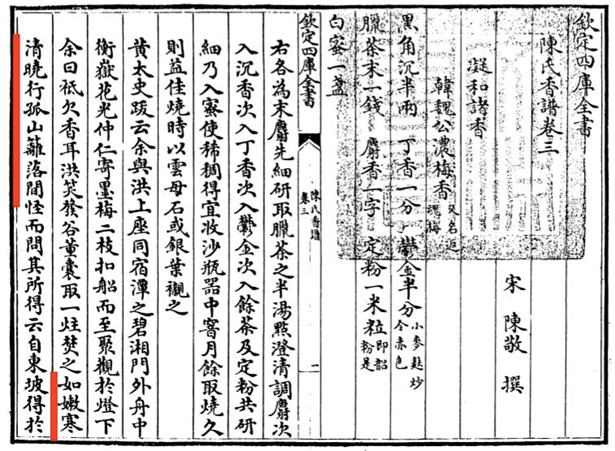 欽定四庫全書
陳氏香譜卷三
宋 陳敬 撰
凝和諸香
韓魏公濃梅香 又名返魂梅
黑角沉半兩 丁香一分 鬱金半分 小麥麩炒令赤色
臘茶末一錢 麝香一字 定粉一米粒 即韶粉是
白蜜一盞
欽定四庫全書
陳氏香譜
卷三
一
右各為末麝先細研取臘茶之半湯點澄清調麝次
入沉香次入丁香次入鬱金次入餘茶及定粉共研
細乃入蜜使稀稠得宜收沙瓶器中窨月餘取燒久
則益佳燒時以雲母石或銀葉襯之
黄太史跋云余與洪上座同宿潭之碧湘門外舟中
衡嶽花光仲仁寄墨梅二枝扣船而至聚觀於燈下
余曰祗欠香耳洪笑發谷董囊取一炷焚之如嫩寒
清曉行孤山籬落間怪而問其所得云自東坡得於